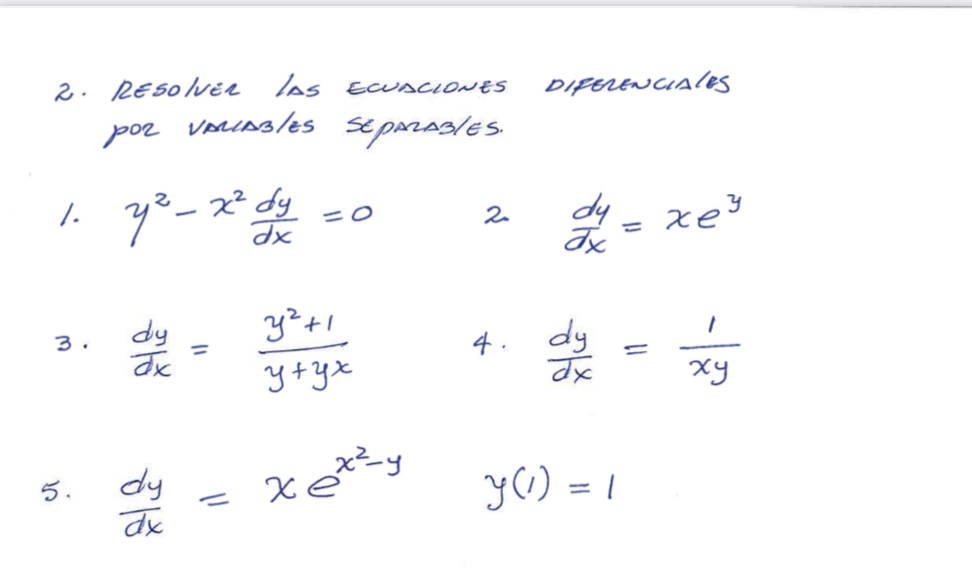 2. RESOLVER LAS ECUACIONES DIFERENCIALES
POR VARIABLES SEPARABLES.
1. y² - x² dy/dx = 0 2. dy/dx = xe^y
3. dy/dx = (y²+1)/(y+yx) 4. dy/dx = 1/(xy)
5. dy/dx = xe^(x²-y) y(1) = 1